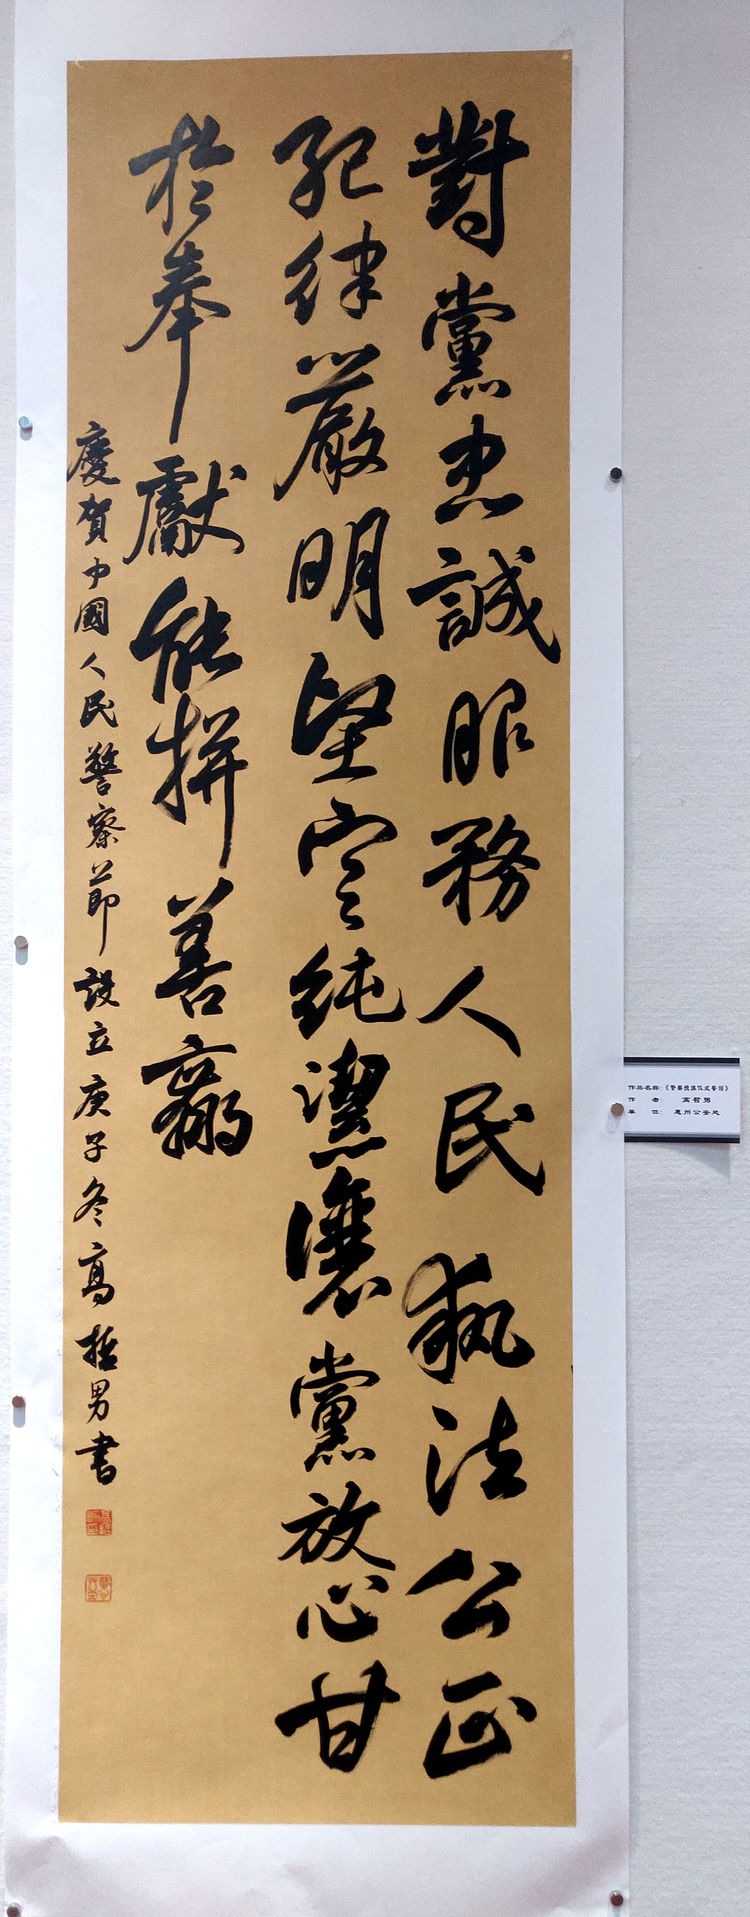 對黨忠誠服務人民執法公正
紀律嚴明堅定純潔讓黨放心甘
於奉獻能拼善贏
慶賀中國人民警察節設立庚子冬高哲男書
作品名称：《警察授旗仪式誓词》
作 者： 高哲男
单 位： 惠州公安处